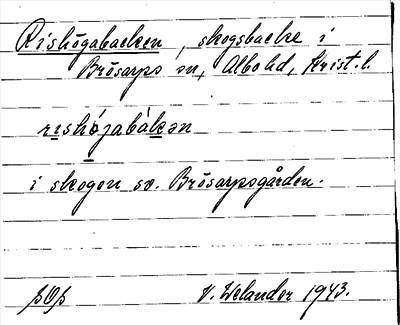 Rishögabacken, skogsbacke i
Brösarps sn, Albo hd, Krist. l.
rishøjabákən
i skogen sv. Brösarpsgården.
V. Welander 1943.